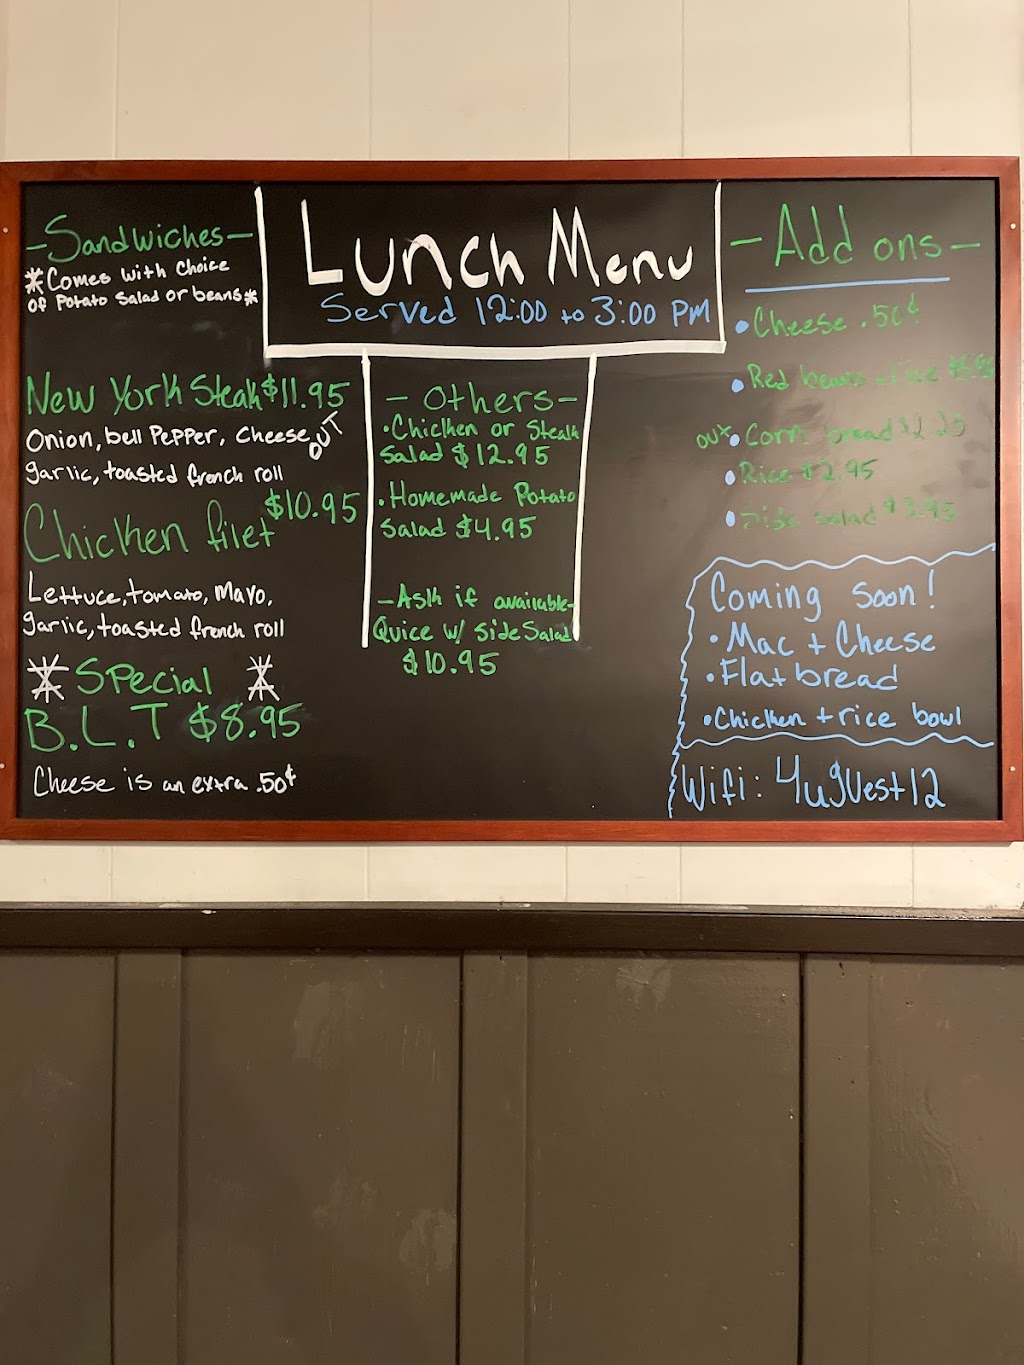 Lunch Menu
Served 12:00 to 3:00 PM
-Sandwiches-
*Comes with choice
of Potato salad or beans*
New York Steak $11.95
Onion, bell Pepper, cheese,
OUT
garlic, toasted french roll
Chicken filet $10.95
Lettuce, tomato, Mayo,
garlic, toasted french roll
* Special *
B.L.T $8.95
Cheese is an extra .50¢
- Others -
• Chicken or Steak
Salad $12.95
• Homemade Potato
Salad $4.95
-Ask if available-
Quice w/ side Salad
$10.95
- Add ons -
• Cheese .50¢
• Red beans + rice
out • Corn bread $2.25
• Rice $2.95
• Side salad $3.95
Coming soon!
• Mac + Cheese
• Flatbread
• Chicken + rice bowl
Wifi: 4ugVest12